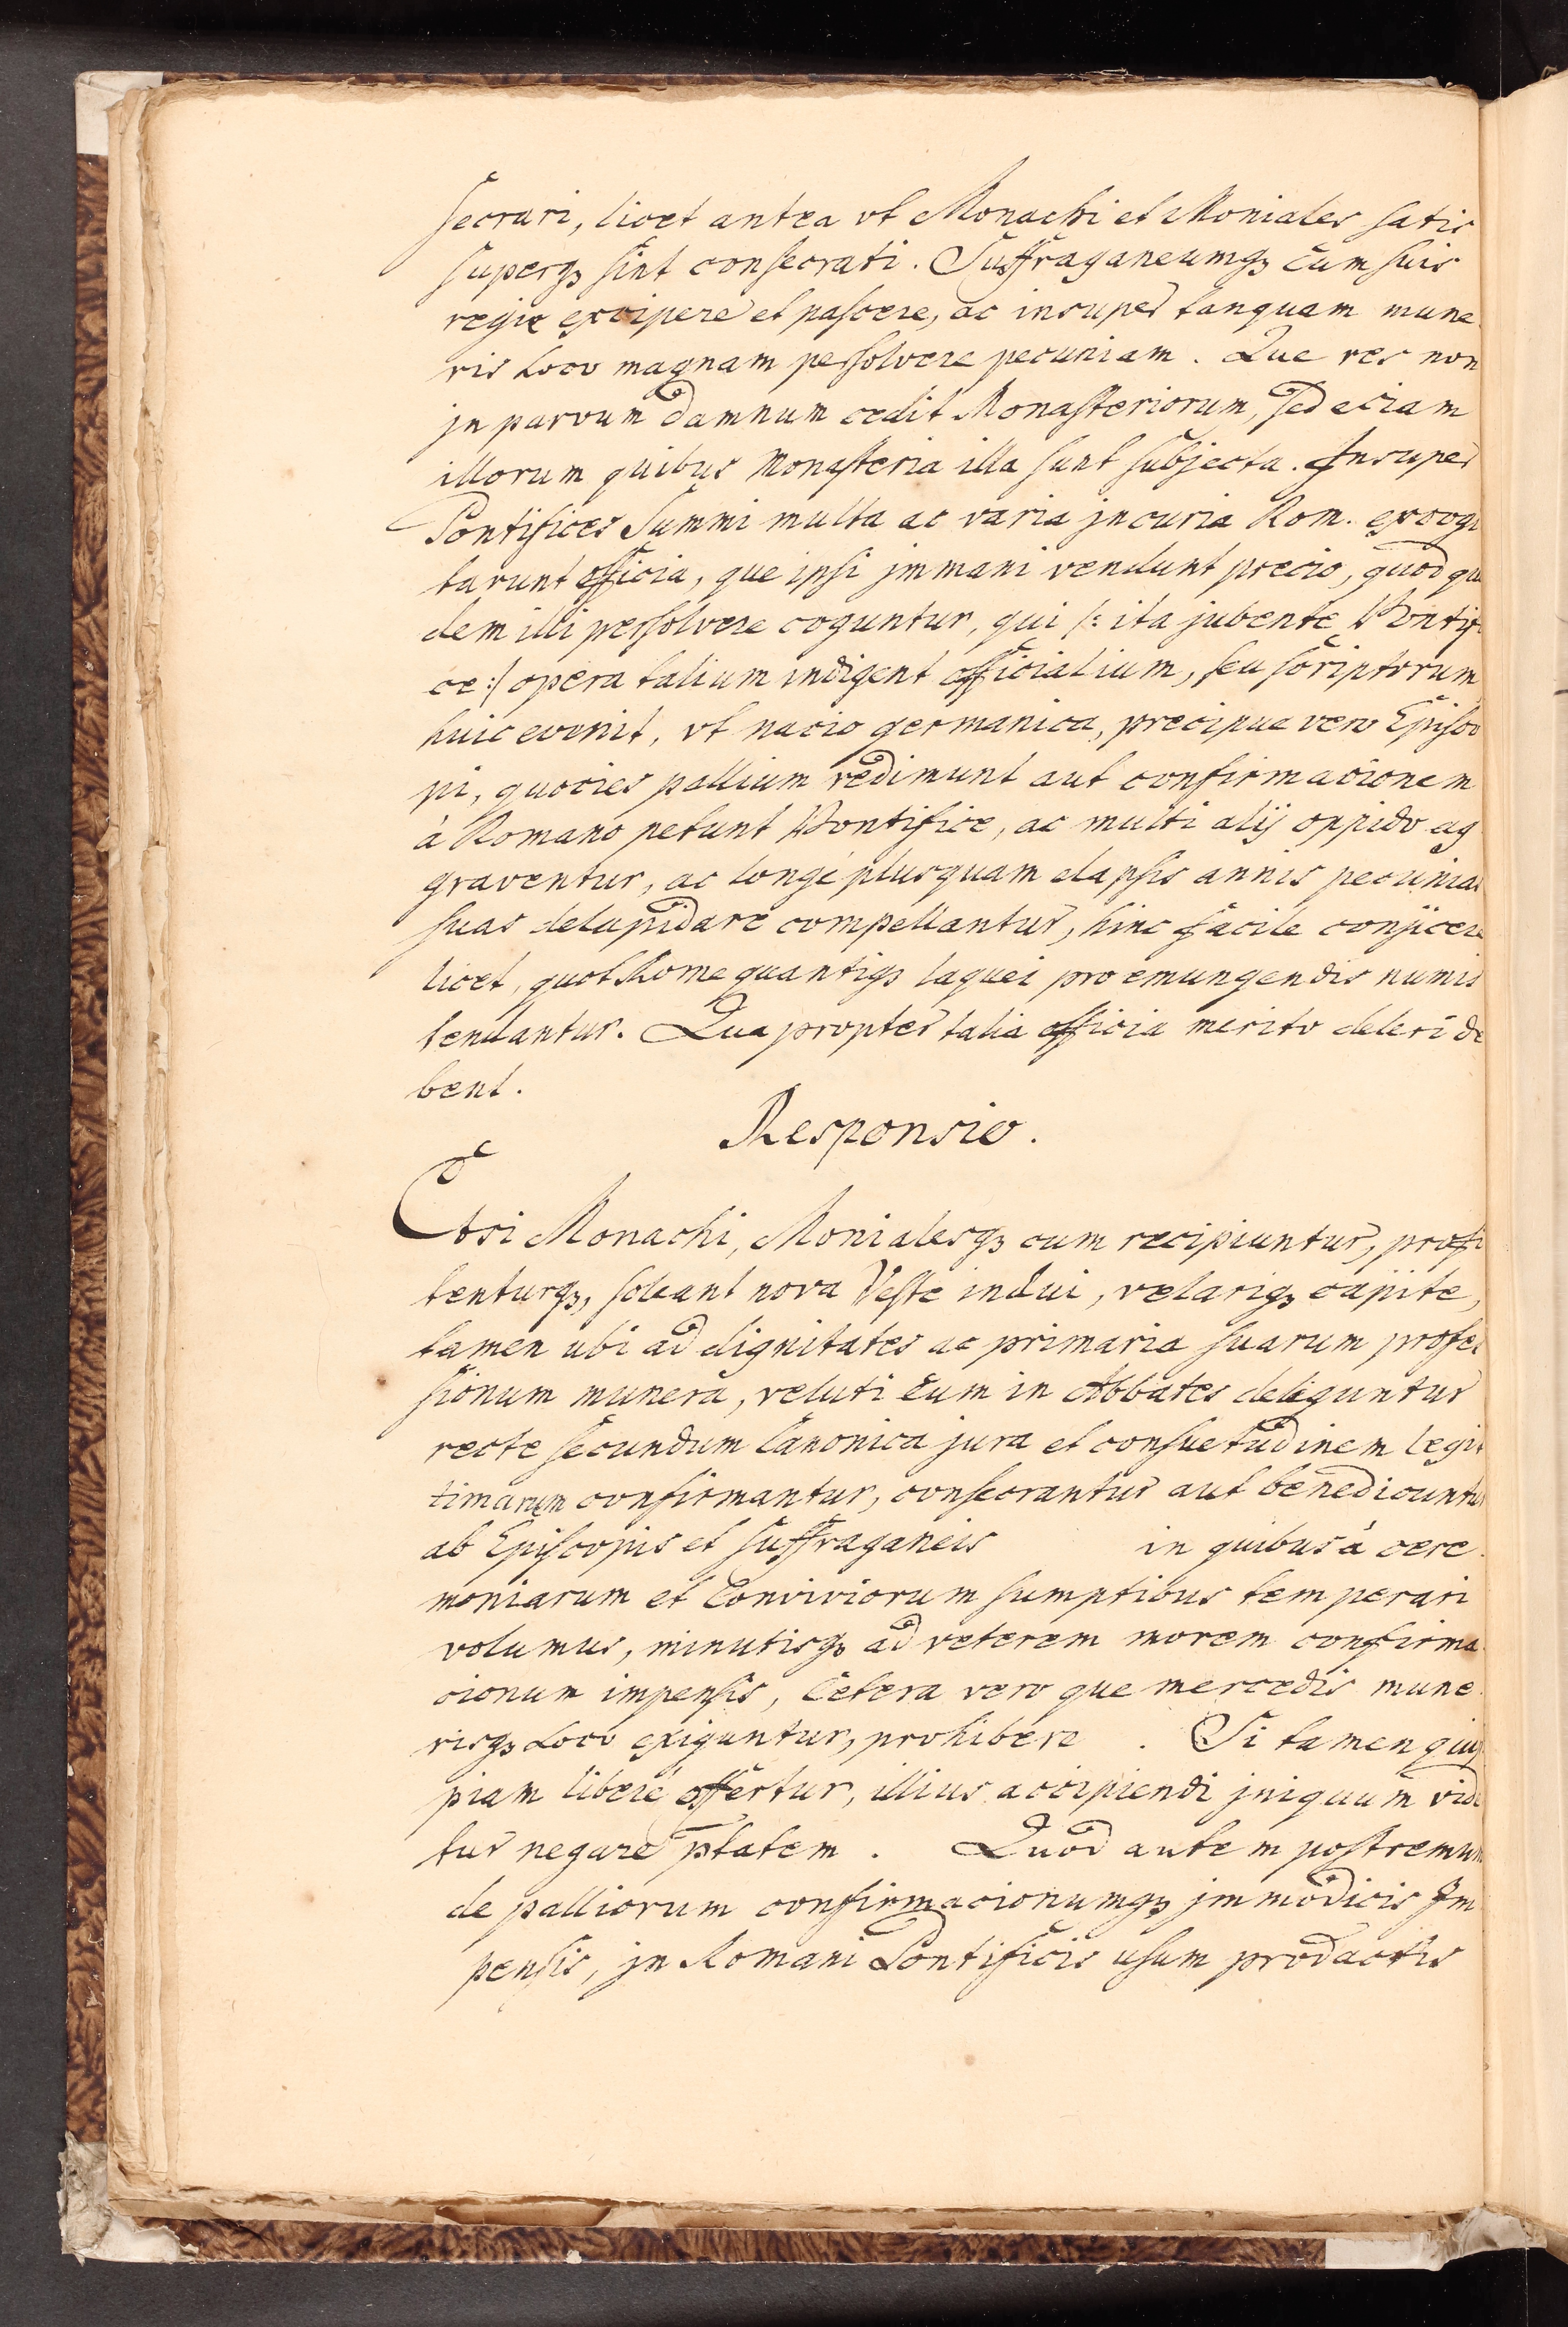 secrari, licet antea vt Monachi et Moniales satis
superqꝫ sint consecrati. Suffraganeumqꝫ cum suis
regie excipere et pascere, ac insuper tanquam mune
ris Loco magnam persolvere pecuniam. Que res non
jn parvum damnum cedit Monasteriorum, sed eciam
illorum quibus Monasteria illa sunt subjecta. Insuper
Pontifices Summi multa ac varia jn curia Rom. excogi
tarunt officia, que ipsi jmmani vendunt precio, quod qui
dem illi persolvere coguntur, qui /: ita jubente Pontifi
ce :/ opera talium indigent officialium, seu scriptorum
huic evenit, vt nacio germanica, precipue vero Episco
pi, quocies pallium redimunt aut confirmacionem
à Romano petunt Pontifice, ac multi alij oppido ag
graventur, ac longé plusquam elapsis annis pecunias
suas delapidare compellantur, hinc facile conjicere
licet, quot Rome quantiqꝫ laquei pro emungendis numis
tendantur. Quapropter talia officia merito deleri de
bent.
Responsio.
Etsi Monachi, Monialesqꝫ cum recipiuntur, profi
tenturqꝫ, soleant nova Veste indui, velariqꝫ capite,
tamen ubi ad dignitates ac primaria suarum profes
sionum munera, veluti cum in Abbates deliguntur
recte secundum Canonica jura et consuetudinem legit
timarum confirmantur, consecrantur aut benedicuntur
ab Episcopis et suffraganeis in quibus à cere
moniarum et Conviviorum sumptibus temperari
volumus, minutisqꝫ ad veterem morem confirma
cionum impensis, Cetera vero que mercedis mune
risqꝫ Loco exiguntur, prohibere . Si tamen quip
piam liberé offertur, illius accipiendi jniquum vide
tur negare ptatem . Quod autem postremum
de palliorum confirmacionumqꝫ jmmodicis Im
pensis, jn Romani Pontificis usum prodactis